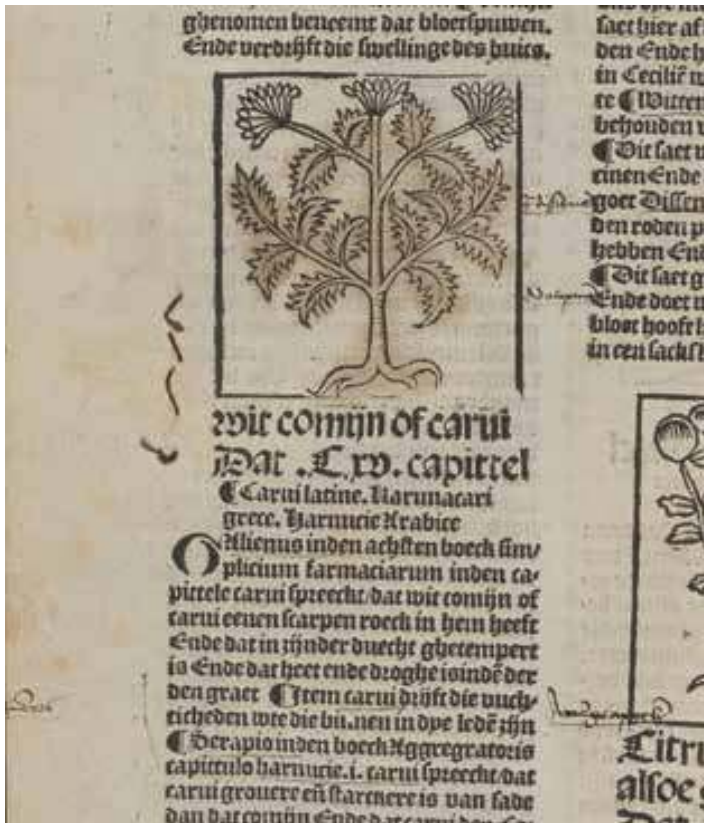 ghenomen beneemt dat bloetspuwen.
Ende verdrijft die swellinge des buics.
wit comijn of carui
Dat .C.xv. capittel
¶ Carui latine. Karunacari
grece. Karnucie Arabice
GAlienus inden achsten boeck sim/
plicium farmaciarum inden ca/
pittele carui spreeckt/dat wit comijn of
carui eenen scarpen roeck in hem heeft
Ende dat in zijnder duecht ghetempert
is Ende dat heet ende droghe is indē der
den graet ¶ Item carui drijft die vuch/
ticheden wte die binnen in dye ledē zijn
¶ Serapio inden boeck Aggregratoris
capittulo karnucie.i. carui spreeckt/dat
carui grouere eñ starckere is van sade
dan dat comijn Ende dat carui den
saet hier af
den Ende h
in Ceciliē
te ¶ Witten
behouden v
¶ Dit saet
einen Ende
goet Dissen
den roden p
hebben End
¶ Dit saet g
Ende doet
bloot hooft
in een sacks
Citru
alsoe g
Dat